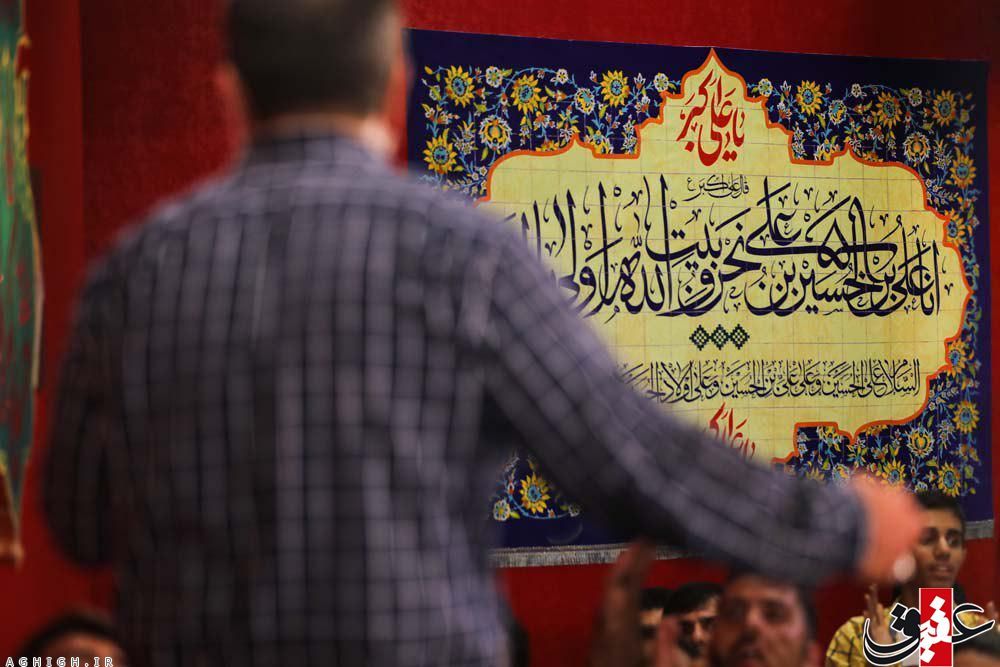 یا علی اکبر
قال علی اکبر ع
انا علی بن الحسین بن علی نحن و بیت الله اولی
السلام علی الحسین و علی علی بن الحسین و علی اولاد
یا علی اکبر
عقیق
AGHIGH.IR